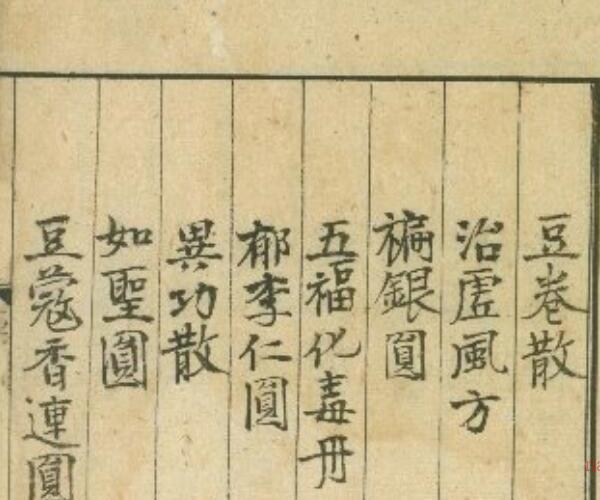 豆卷散
治虛風方
褊銀圓
五福化毒丹
郁李仁圓
異功散
如聖圓
豆蔻香連圓